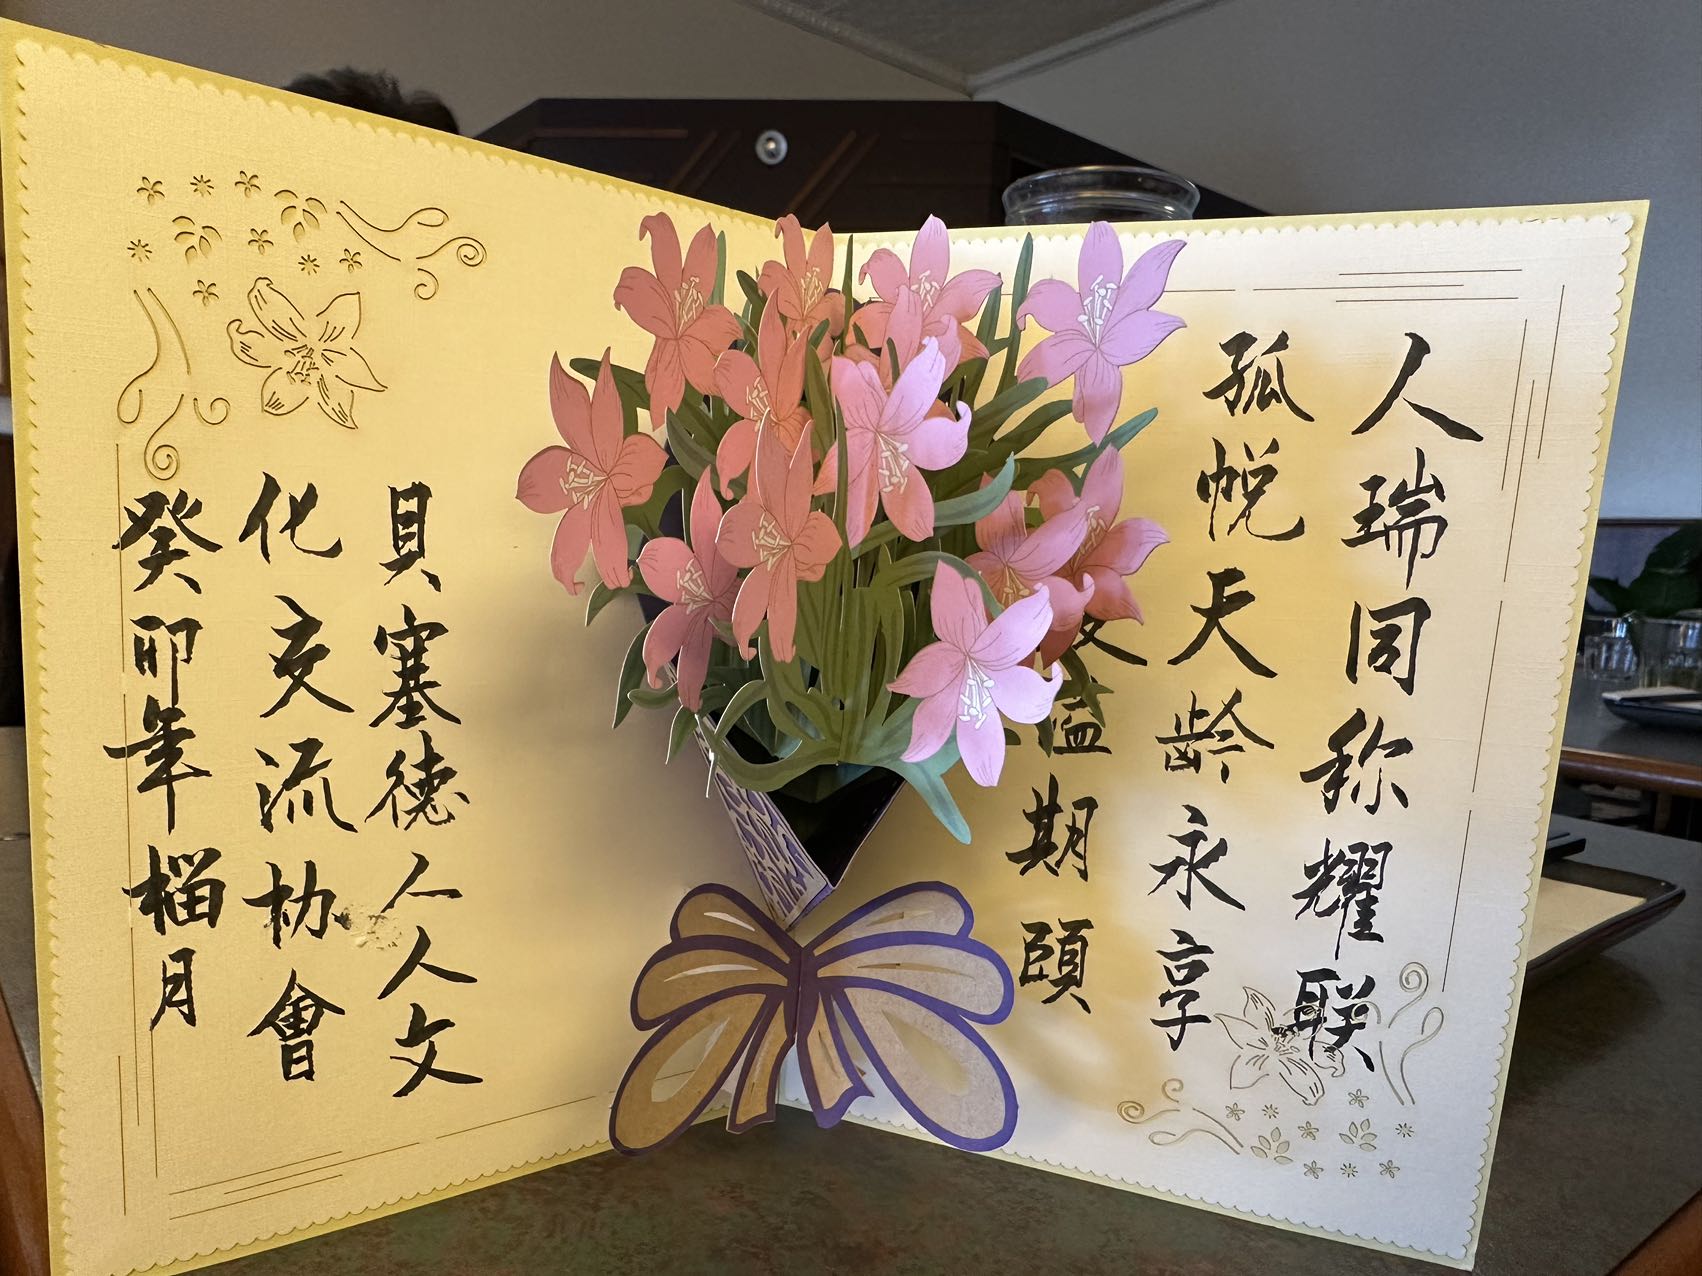 人瑞同称耀联
孤帨天龄永享
期頤
貝塞德人人文
化交流协會
癸卯年榴月